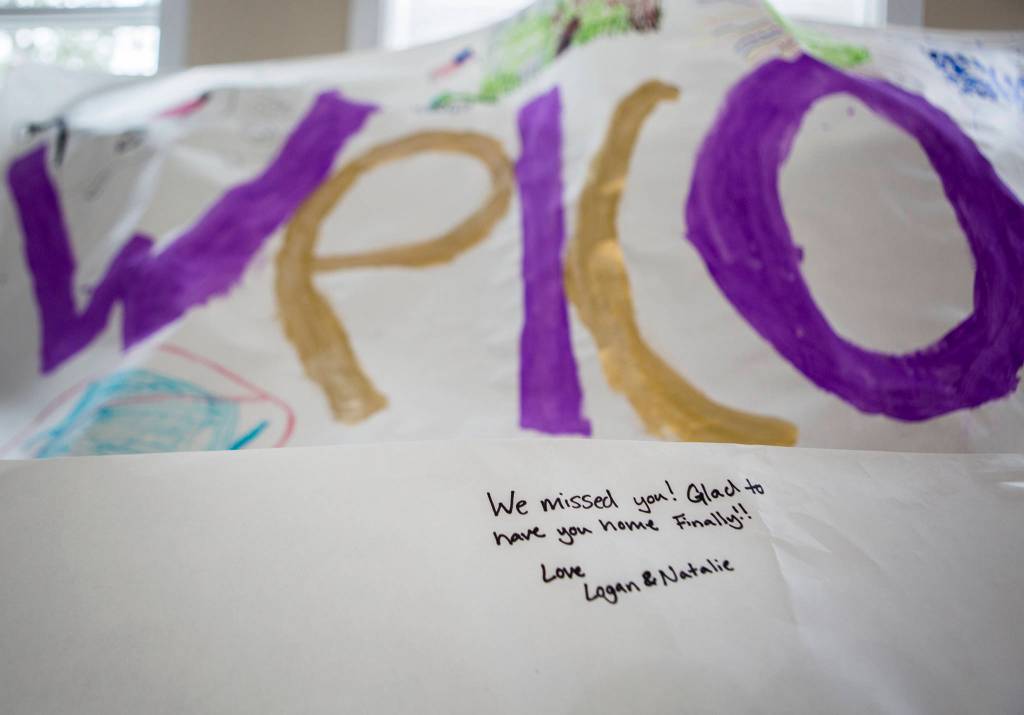 Welco
We missed you! Glad to
have you home Finally!!
Love
Logan & Natalie